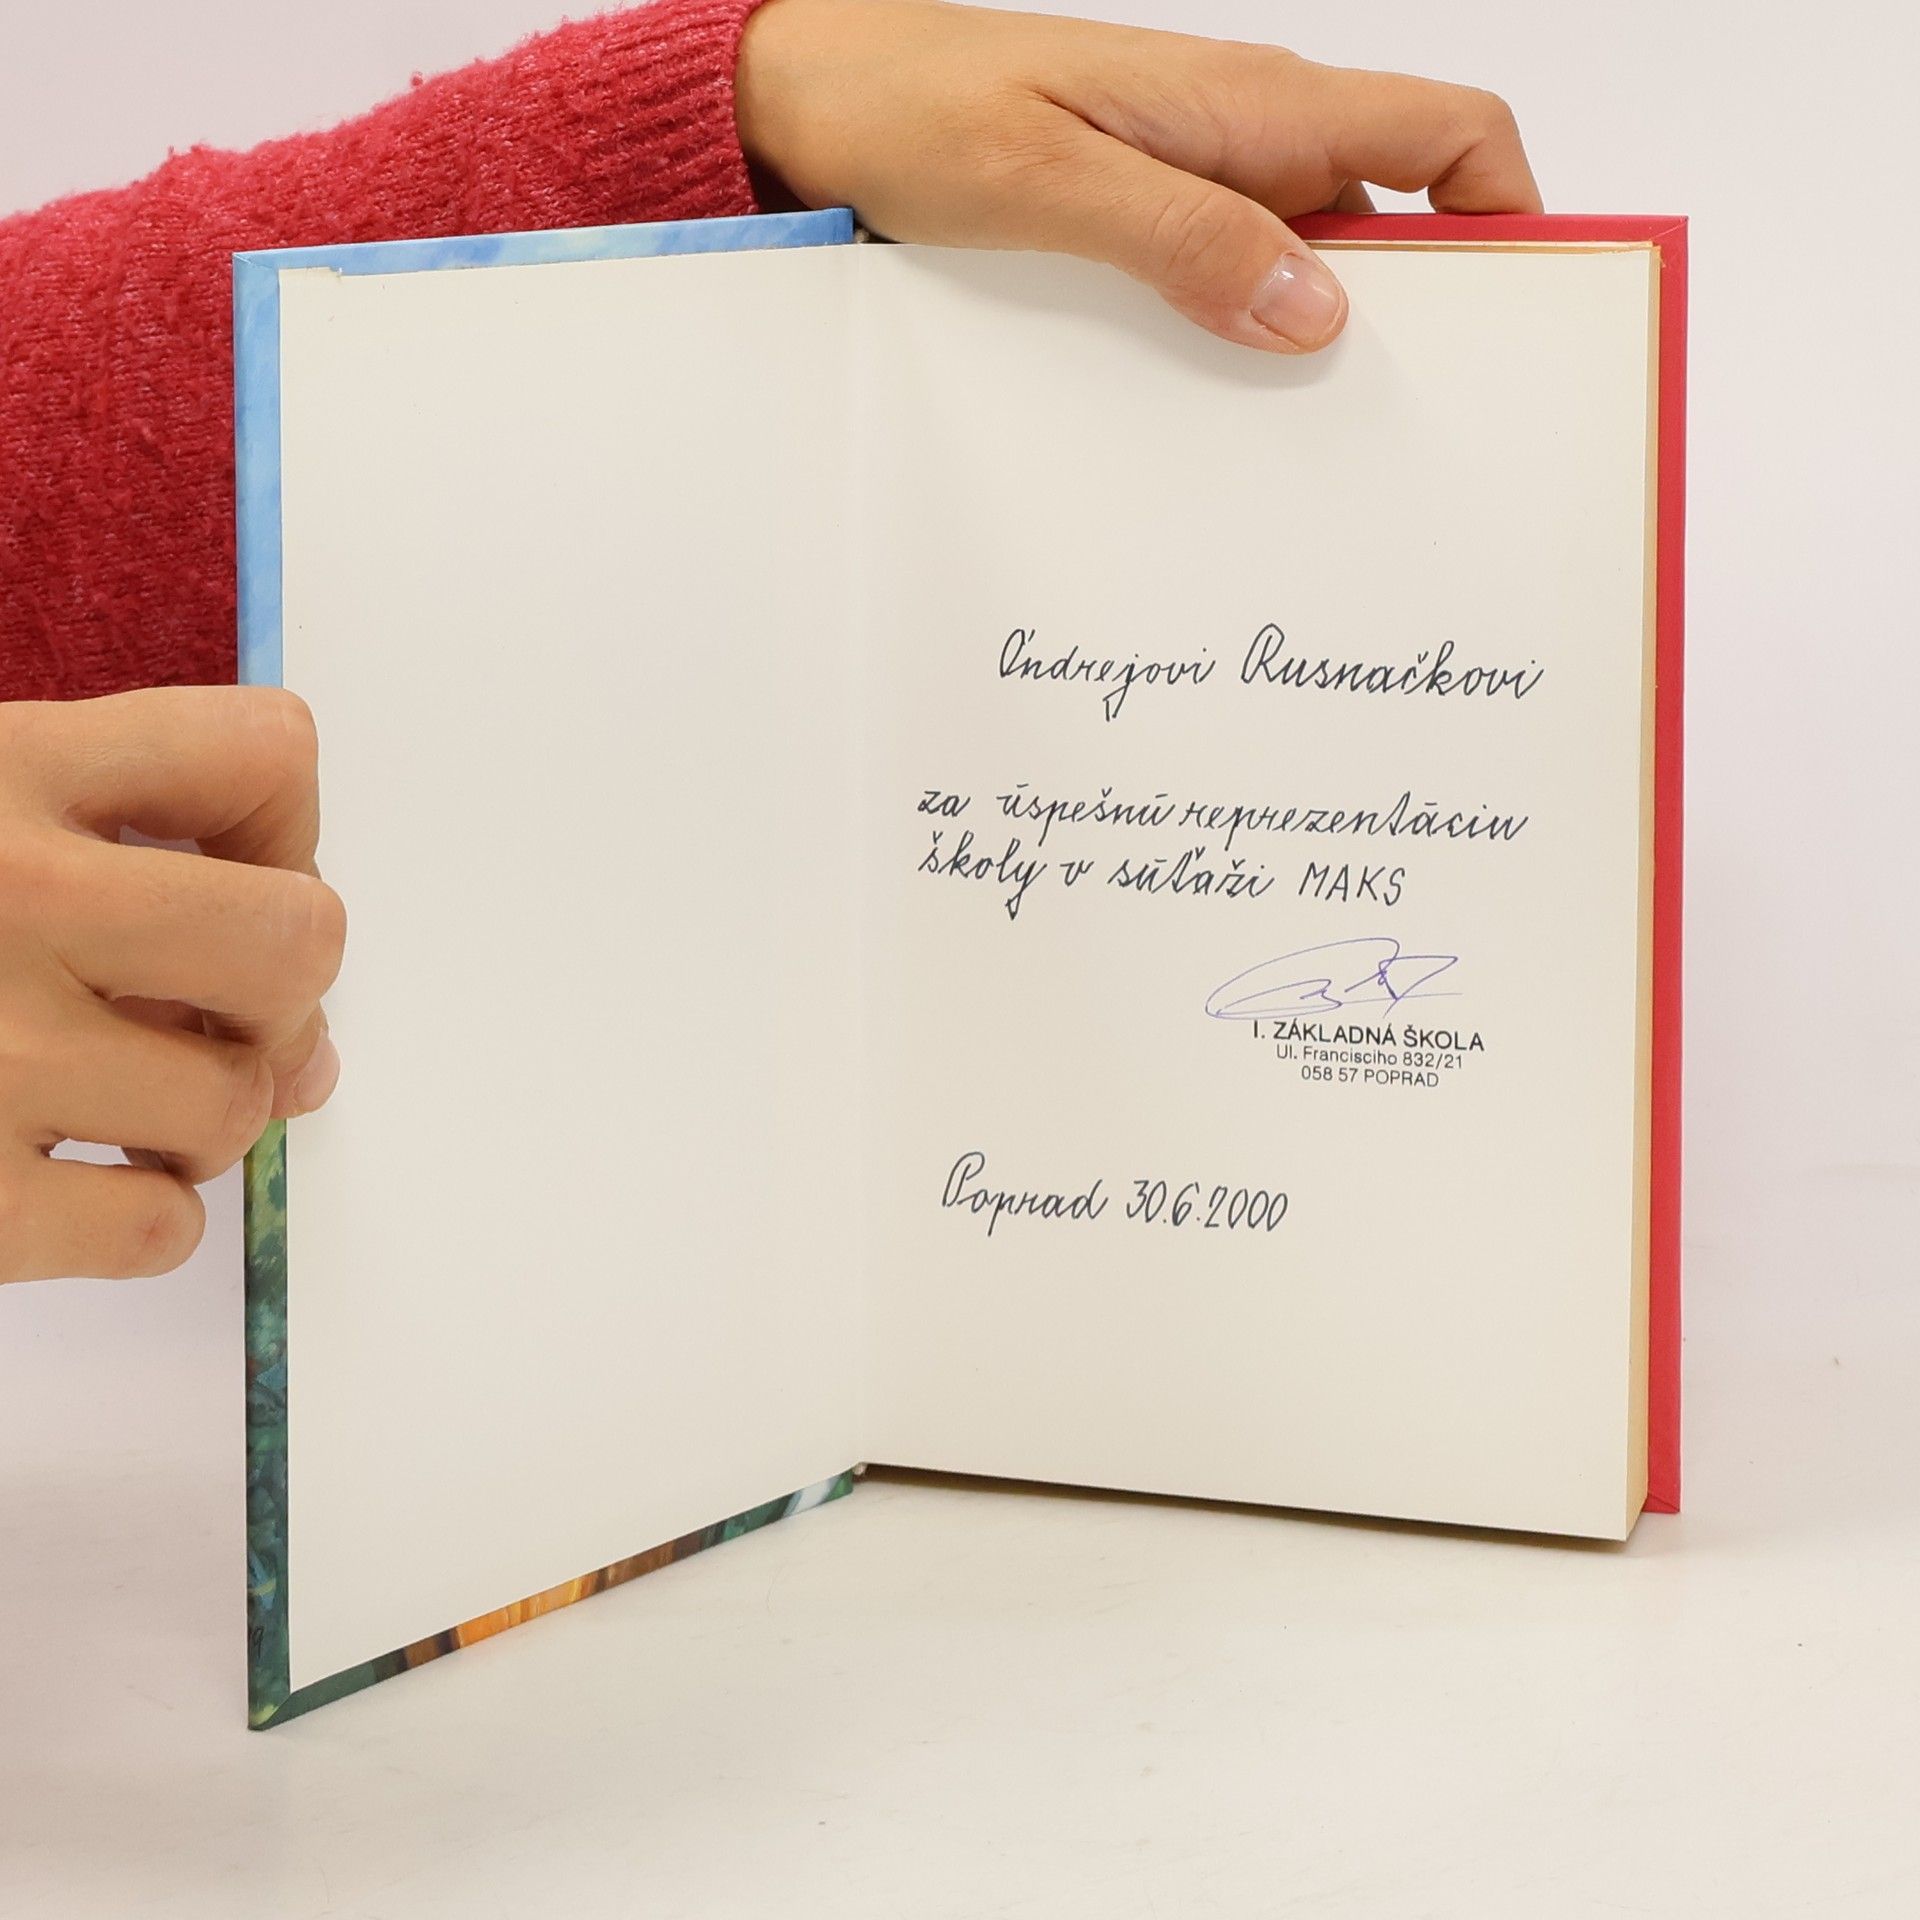 Ondrejovi Rusnačkovi
za úspešnú reprezentáciu
školy v súťaži MAKS
I. ZÁKLADNÁ ŠKOLA
Ul. Francisciho 832/21
058 57 POPRAD
Poprad 30.6.2000